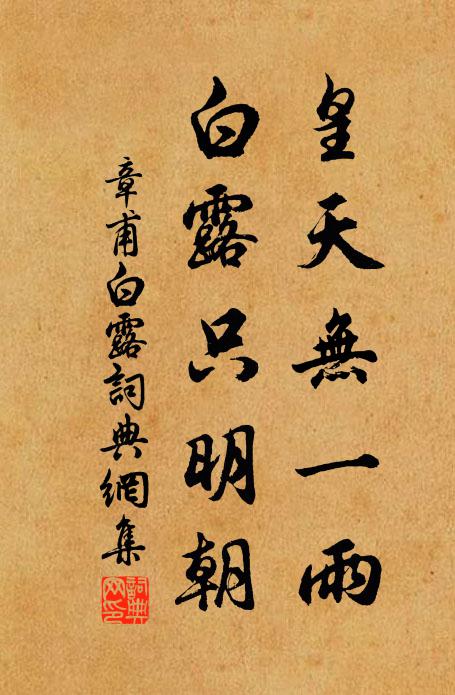 皇天無一雨
白露只明朝
章甫白露詞典網集
詞典
网印